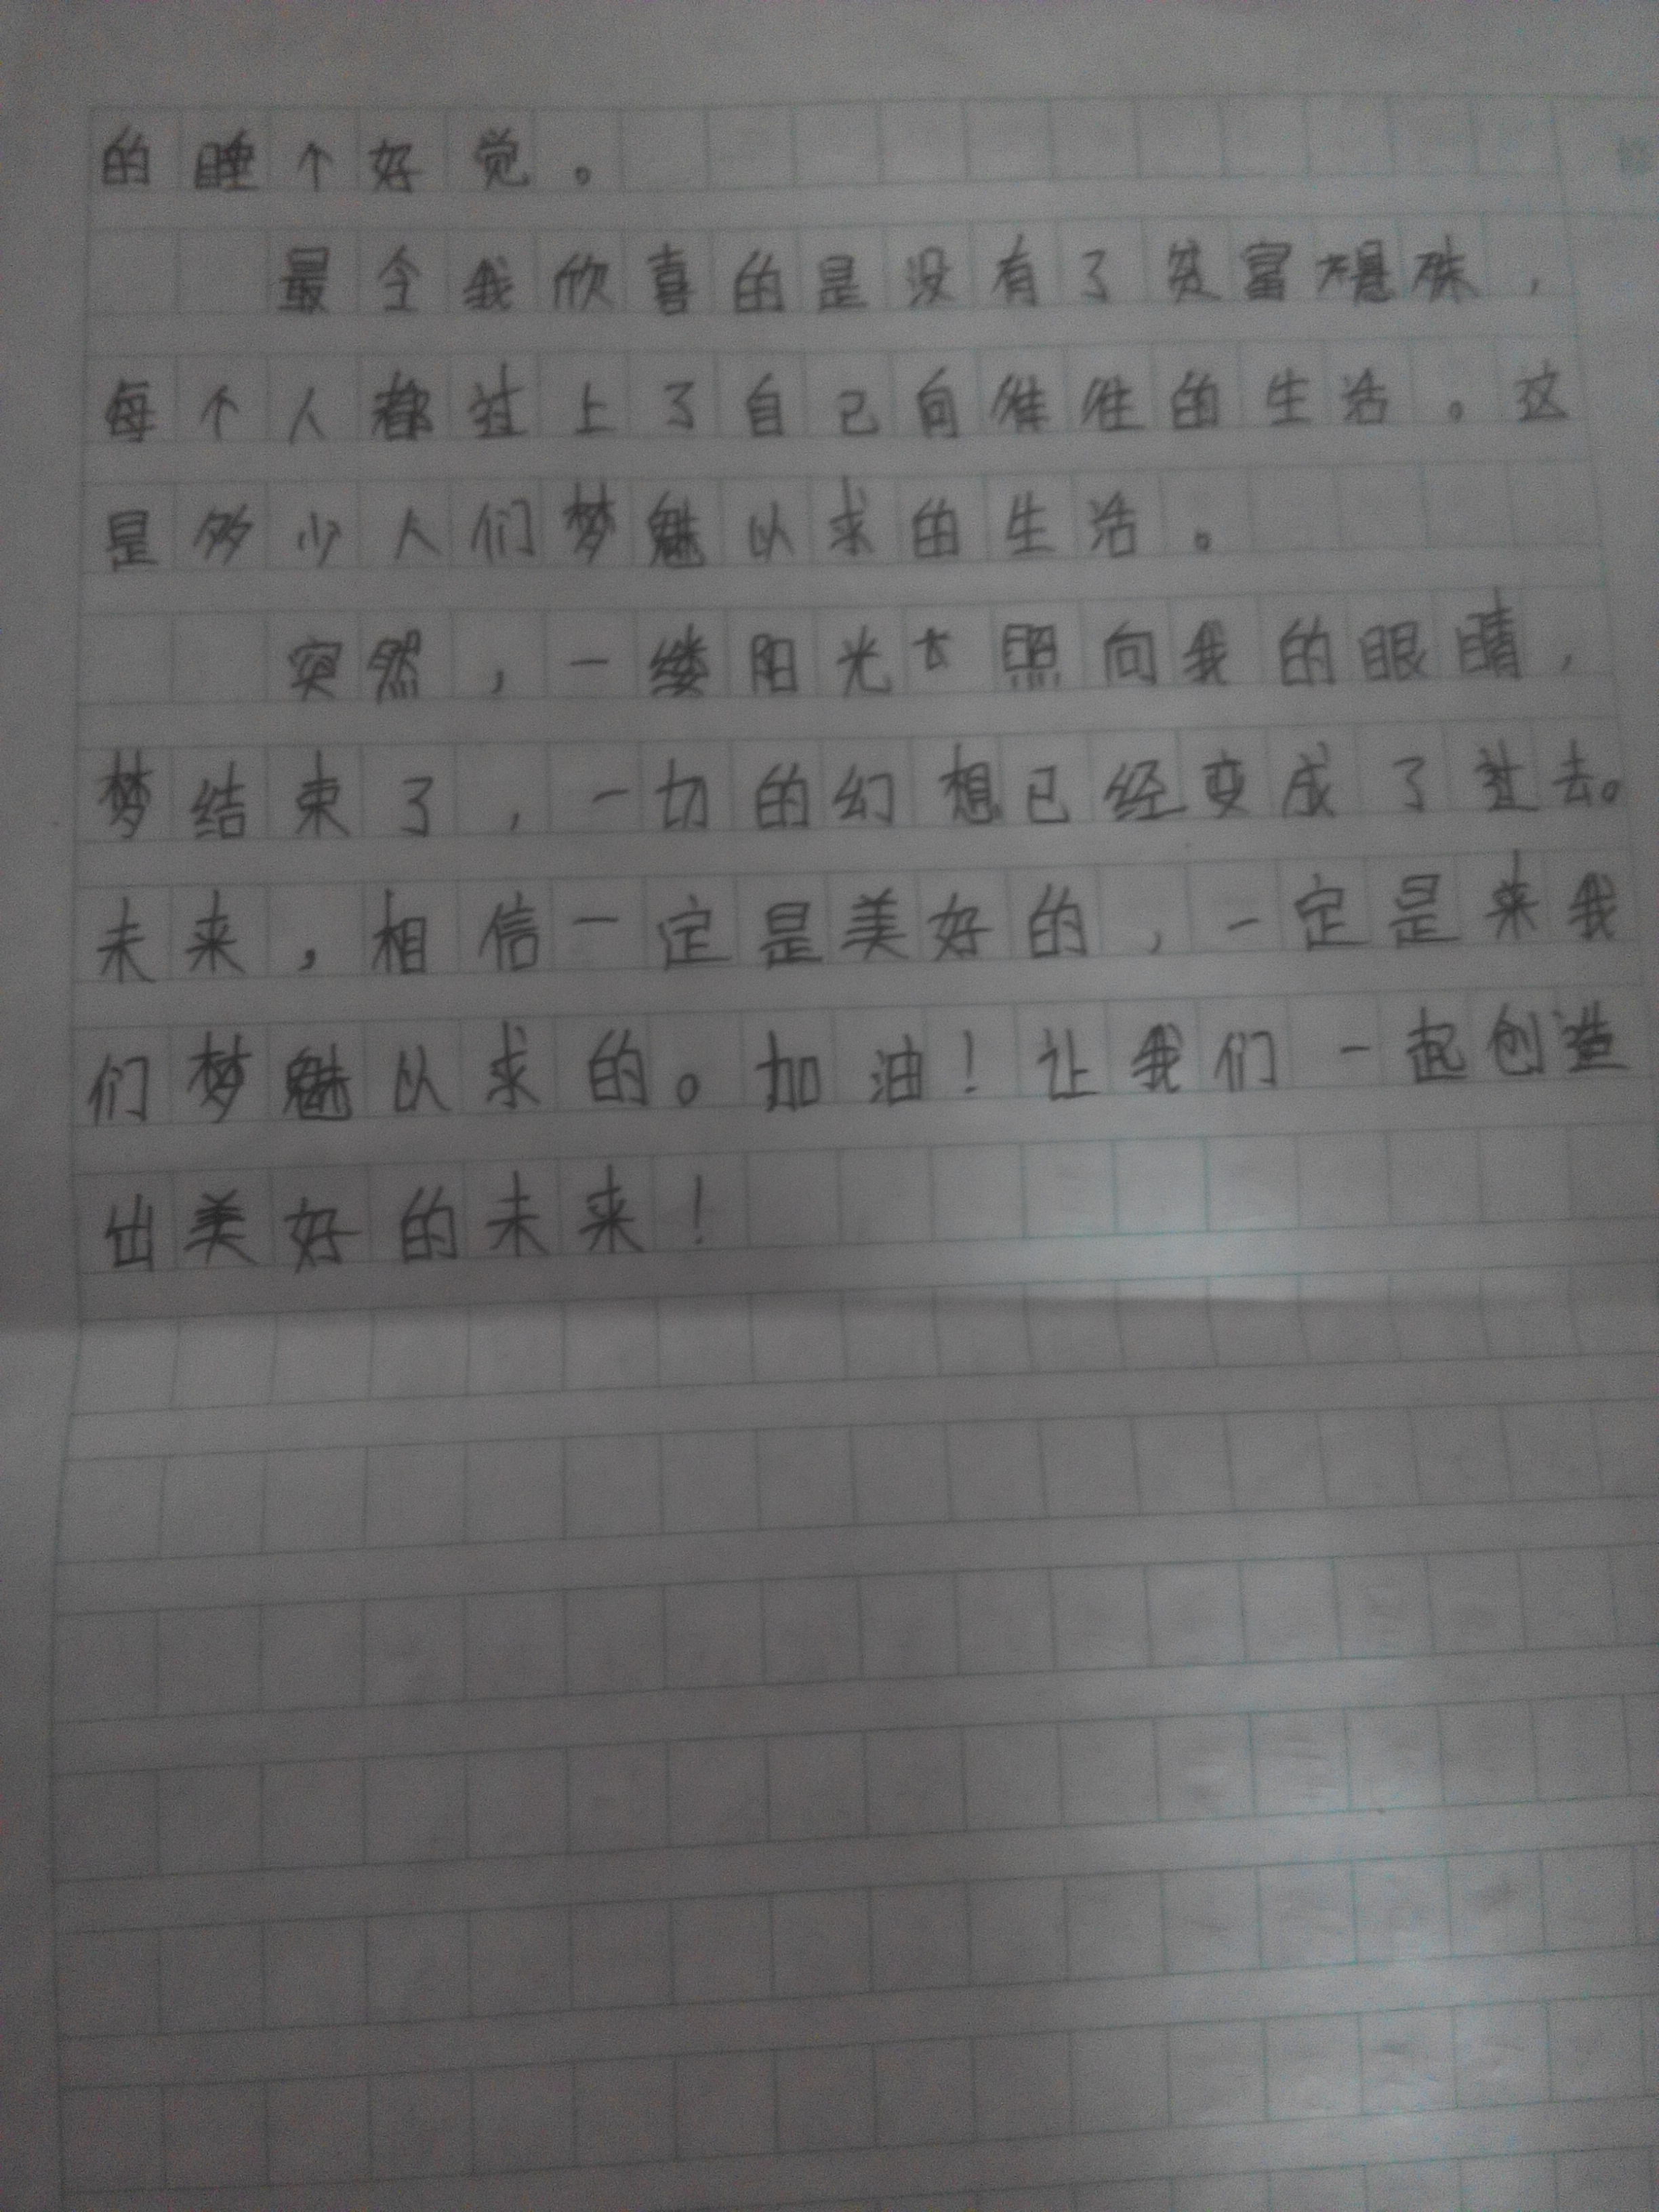 的睡个好觉。
最令我欣喜的是没有了贫富悬殊，
每个人都过上了自己向往往的生活。这
是多少人们梦魅以求的生活。
突然，一缕阳光照向我的眼睛，
梦结束了，一切的幻想已经变成了过去。
未来，相信一定是美好的，一定是来我
们梦魅以求的。加油！让我们一起创造
出美好的未来！